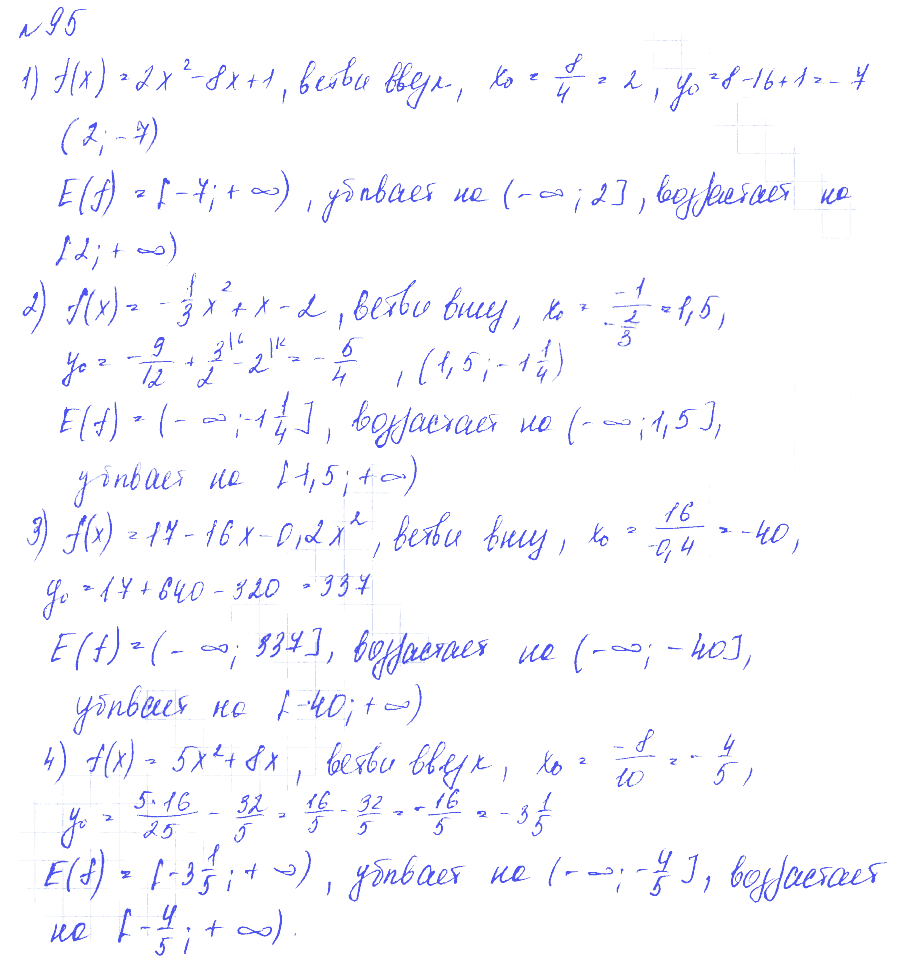 №95
1) f(x) = 2x² - 8x + 1, ветви вверх, x₀ = 8/4 = 2, y₀ = 8 - 16 + 1 = -7
(2; -7)
E(f) = [-7; +∞), убывает на (-∞; 2], возрастает на
[2; +∞)
2) f(x) = -1/3 x² + x - 2, ветви вниз, x₀ = -1/(-2/3) = 1,5,
y₀ = -9/12 + 3/2 - 2 = -5/4, (1,5; -1 1/4)
E(f) = (-∞; -1 1/4], возрастает на (-∞; 1,5],
убывает на [1,5; +∞)
3) f(x) = 17 - 16x - 0,2x², ветви вниз, x₀ = 16/-0,4 = -40,
y₀ = 17 + 640 - 320 = 337
E(f) = (-∞; 337], возрастает на (-∞; -40],
убывает на [-40; +∞)
4) f(x) = 5x² + 8x, ветви вверх, x₀ = -8/10 = -4/5,
y₀ = 5·16/25 - 32/5 = 16/5 - 32/5 = -16/5 = -3 1/5
E(f) = [-3 1/5; +∞), убывает на (-∞; -4/5], возрастает
на [-4/5; +∞).